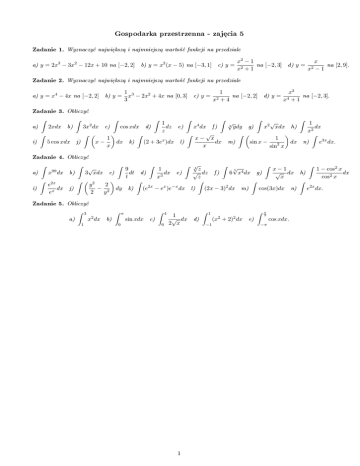 Gospodarka przestrzenna - zajęcia 5
Zadanie 1. Wyznaczyć największą i najmniejszą wartość funkcji na przedziale
a) y = 2x³ − 3x² − 12x + 10 na [−2, 2] b) y = x²(x − 5) na [−3, 1] c) y = (x² − 1)/(x² + 1) na [−2, 3] d) y = x/(x² − 1) na [2, 9].
Zadanie 2. Wyznaczyć największą i najmniejszą wartość funkcji na przedziale
a) y = x⁴ − 4x na [−2, 2] b) y = 1/3 x³ − 2x² + 4x na [0, 3] c) y = 1/(x² + 4) na [−2, 2] d) y = x²/(x³ + 1) na [−2, 3].
Zadanie 3. Obliczyć
a) ∫ 2xdx b) ∫ 3x²dx c) ∫ cos xdx d) ∫ 1/z dz e) ∫ x⁴dx f) ∫ √y dy g) ∫ x²√x dx h) ∫ 1/x² dx
i) ∫ 5 cos xdx j) ∫ (x − 1/x) dx k) ∫ (2 + 3eˣ)dx l) ∫ (x − √x)/x dx m) ∫ (sin x − 1/sin² x) dx n) ∫ e³ˣdx.
Zadanie 4. Obliczyć
b) ∫ 3√x dx c) ∫ 9/t dt d) ∫ 1/x³ dx g) ∫ (x − 1)/√x dx h) ∫ (1 − cos² x)/cos² x dx
i) ∫ e²ˣ/eˣ dx j) ∫ (y²/2 − 2/y²) dy k) ∫ (e²ˣ − eˣ)e⁻ˣdx l) ∫ (2x − 3)²dx m) ∫ cos(3x)dx n) ∫ e²ˣdx.
Zadanie 5. Obliczyć
a) ∫ x²dx b) ∫ sin xdx c) ∫ 1/(2√x) dx d) ∫ (x² + 2)²dx e) ∫ cos xdx.
1